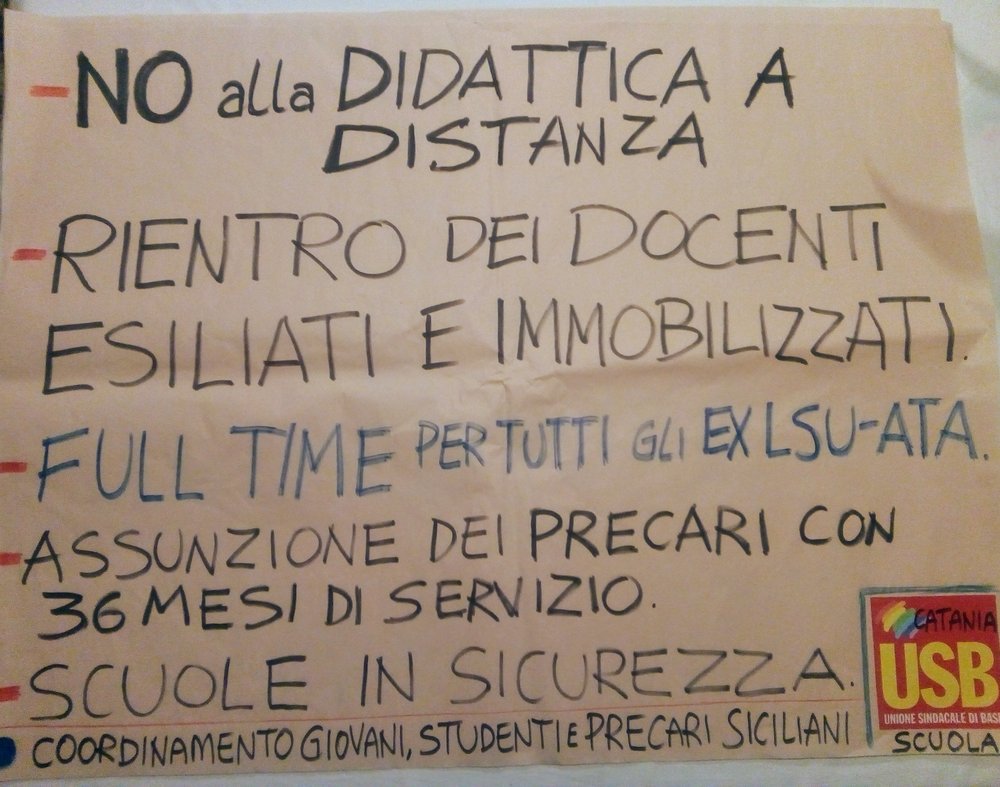 - NO alla DIDATTICA A
DISTANZA
- RIENTRO DEI DOCENTI
ESILIATI E IMMOBILIZZATI.
- FULL TIME PER TUTTI GLI EX LSU-ATA.
- ASSUNZIONE DEI PRECARI CON
36 MESI DI SERVIZIO.
- SCUOLE IN SICUREZZA.
COORDINAMENTO GIOVANI, STUDENTI E PRECARI SICILIANI
CATANIA
USB
UNIONE SINDACALE DI BASE
SCUOLA